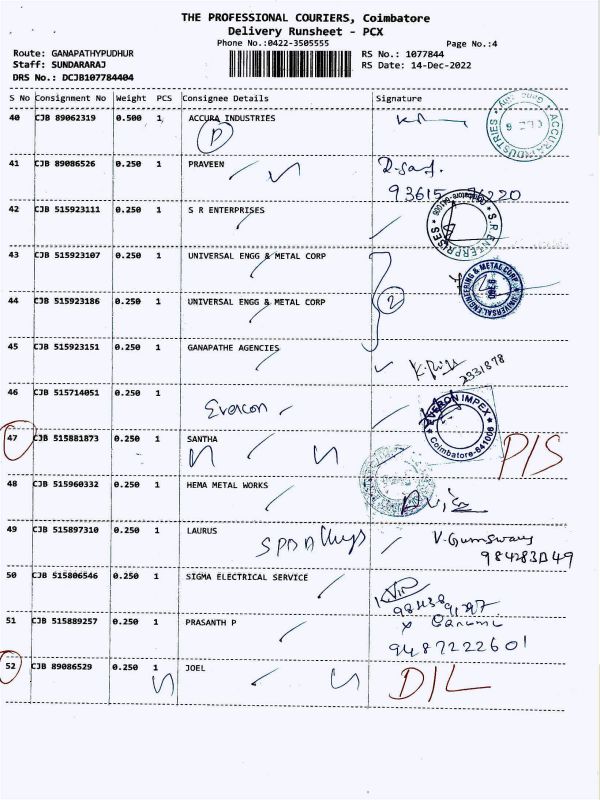 THE PROFESSIONAL COURIERS, Coimbatore
Delivery Runsheet - PCX
Phone No.:0422-3505555
Page No.:4
Route: GANAPATHYPUDHUR
RS No.: 1077844
Staff: SUNDARARAJ
RS Date: 14-Dec-2022
DRS No.: DCJB107784404
S No Consignment No Weight PCS Consignee Details Signature
40 CJB 89062319 0.500 1 ACCURA INDUSTRIES
D
ACCURA INDUSTRIES
41 CJB 89086526 0.250 1 PRAVEEN
93615
42 CJB 515923111 0.250 1 S R ENTERPRISES
S.R. ENTERPRISES
43 CJB 515923107 0.250 1 UNIVERSAL ENGG & METAL CORP
2
UNIVERSAL ENGINEERING & METAL CORP
44 CJB 515923186 0.250 1 UNIVERSAL ENGG & METAL CORP
45 CJB 515923151 0.250 1 GANAPATHE AGENCIES
2331878
46 CJB 515714051 0.250 1
Everon
EVERON IMPEX
Coimbatore-641006
47 CJB 515881873 0.250 1 SANTHA
P/S
48 CJB 515960332 0.250 1 HEMA METAL WORKS
49 CJB 515897310 0.250 1 LAURUS
50 CJB 515806546 0.250 1 SIGMA ELECTRICAL SERVICE
51 CJB 515889257 0.250 1 PRASANTH P
9487222601
52 CJB 89086529 0.250 1 JOEL
D/L